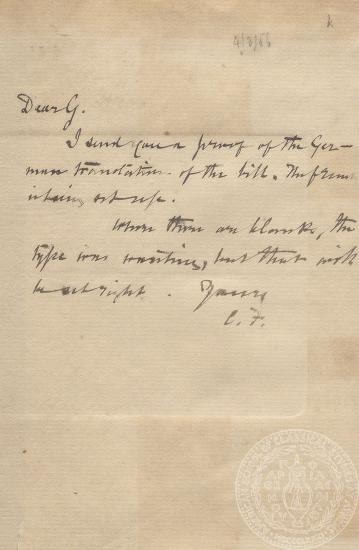 k
4/3/86
Dear G.
I send you a proof of the Ger-
man translation of the bill. The French
is being set up.
Where there are blanks, the
type was wanting, but that will
be set right. Yours
C. F.